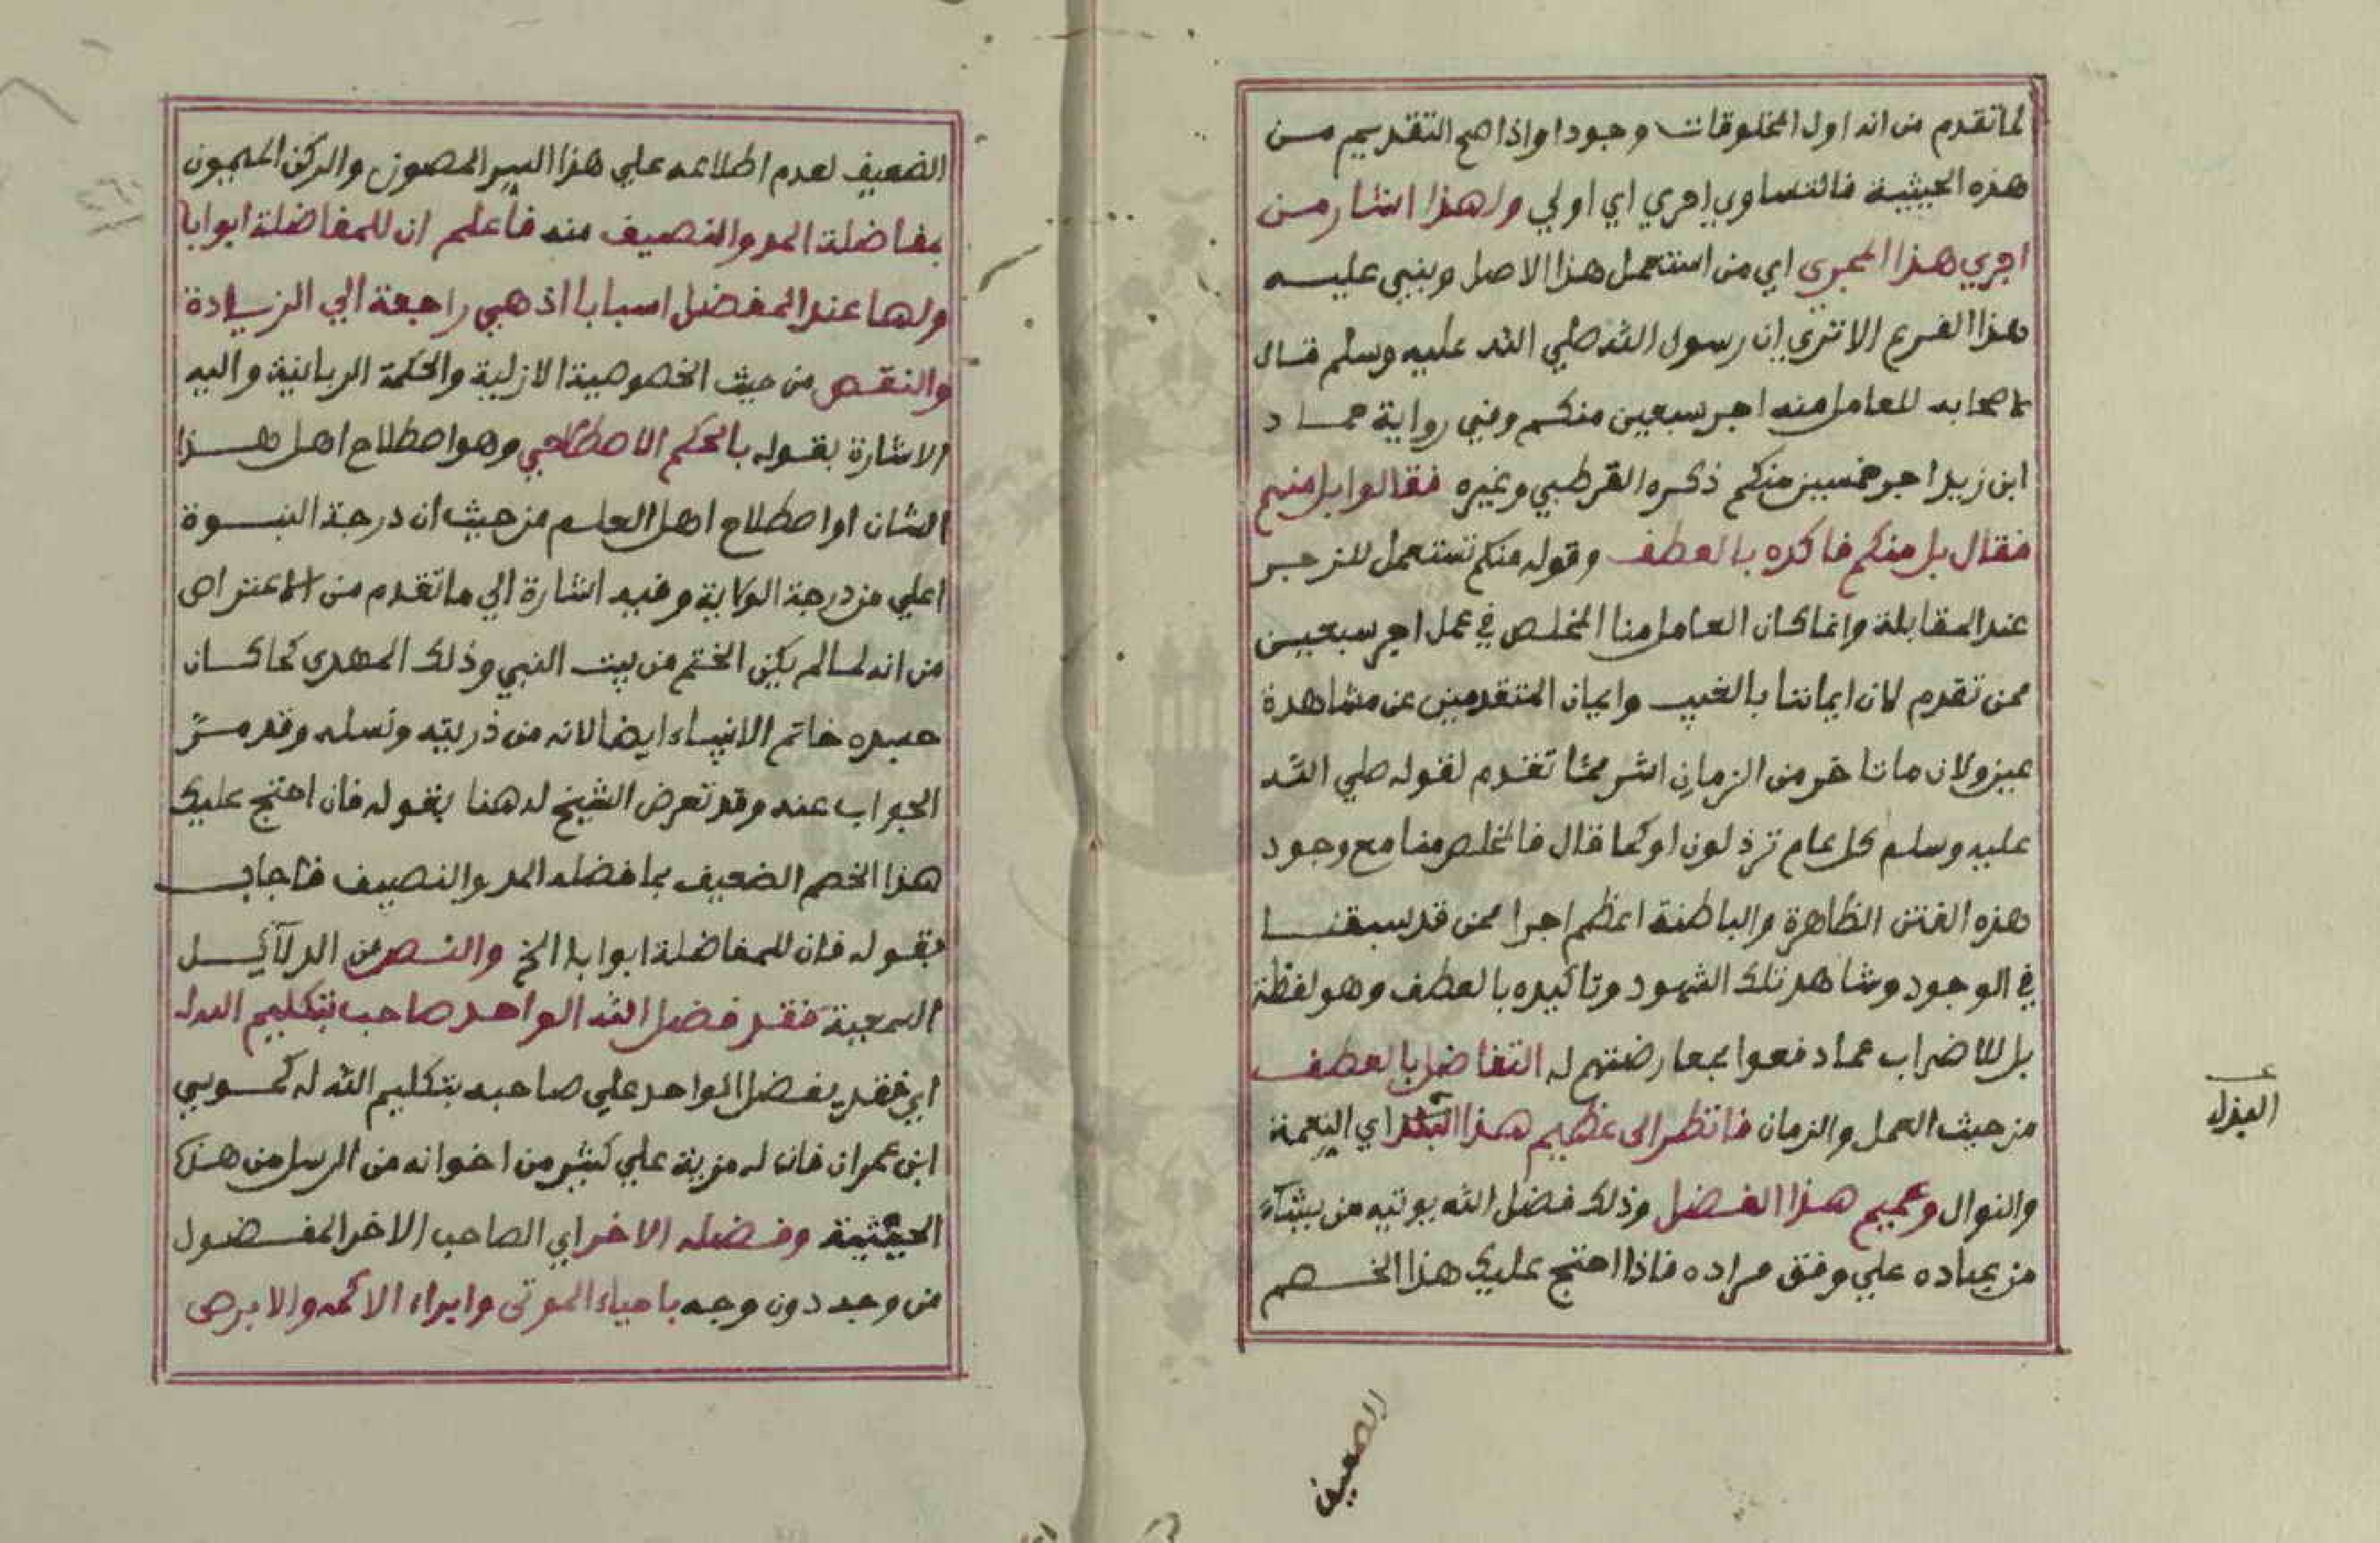 لما تقدم من انه اول المخلوقات وجودا واذا صح التقديم من
هذه الحيثية فالتساوي احري اي اولي ولهذا اشار من
اجري هذا المجرى اي من استعمل هذا الاصل وبني عليه
هذا الفرع الا تري ان رسول الله صلي الله عليه وسلم قال
لاصحابه للعامل منه اجر سبعين منكم وفي رواية حماد
ابن زيد اجر خمسين منكم ذكره القرطبي وغيره فقالوا بل منهم
فقال بل منكم فاكده بالعطف وقوله منكم تستعمل للزجر
عند المقابلة وانما كان العامل منا المخلص في عمل اجر سبعين
ممن تقدم لان ايماننا بالغيب وايمان المتقدمين عن مشاهدة
عين ولان ما تاخر من الزمان اشر مما تقدم لقوله صلي الله
عليه وسلم كل عام ترذلون او كما قال فالمخلص منا مع وجود
هذه الفتن الظاهرة والباطنة اعظم اجرا ممن قد سبقنا
في الوجود وشاهد تلك الشهود وتاكيده بالعطف وهو لفظة
بل للاضراب عما دفعوا بمعارضتهم له التفاضل بالعطف
من حيث العمل والزمان فانظر الى عظيم هذا اي النعمة
والنوال وعميم هذا الفضل وذلك فضل الله يوتيه من يشآء
من عباده علي وفق مراده فاذا احتج عليك هذا الخصم
الضعيف
الضعيف لعدم اطلاعه علي هذا السر المصون والركن الميمون
بمفاضلة المد والنصيف منه فاعلم ان للمفاضلة ابوابا
ولها عند المفضل اسبابا اذ هي راجعة الي الزيادة
والنقص من حيث الخصوصية الازلية والحكمة الربانية واليه
الاشارة بقوله بالحكم الاصطلاحي وهو اصطلاح اهل هذا
الشان او اصطلاح اهل العلم من حيث ان درجة النبوة
اعلي من درجة الولاية وفيه اشارة الي ما تقدم من الاعتراض
من انه لما لم يكن الختم من بيت النبي وذلك المهدى كما كان
جده خاتم الانبياء ايضا لانه من ذريته ونسله وقد مر
الجواب عنه وقد تعرض الشيخ له هنا بقوله فان احتج عليك
هذا الخصم الضعيف بما فضله المد والنصيف فاجاب
بقوله فان للمفاضلة ابوابا الخ والنص من الدلآئل
السمعية فقد فضل الله الواحد صاحب بتكليم الله
اي فقد يفضل الواحد علي صاحبه بتكليم الله له كموسي
ابن عمران فان له مزية علي كثير من اخوانه من الرسل من هذه
الحيثية وفضله الاخر اي الصاحب الاخر المفضول
من وجه دون وجه باحياء الموتى وابراء الاكمه والابرص